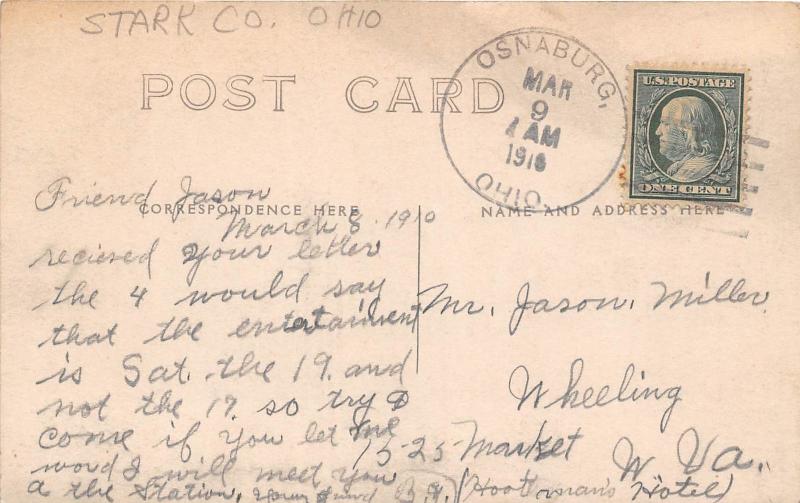 STARK CO. OHIO
POST CARD
OSNABURG,
MAR
9
AM
1910
OHIO.
U.S. POSTAGE
ONE CENT
Friend Jason
CORRESPONDENCE HERE
March 8. 1910
recieved your letter
the 4 would say
that the entertainment
is Sat. the 19. and
not the 17. so try &
come if you let me
word I will meet you
a the Station, your friend
NAME AND ADDRESS HERE
Mr. Jason. Miller
Wheeling
15-25- Market W. Va.
Hotel